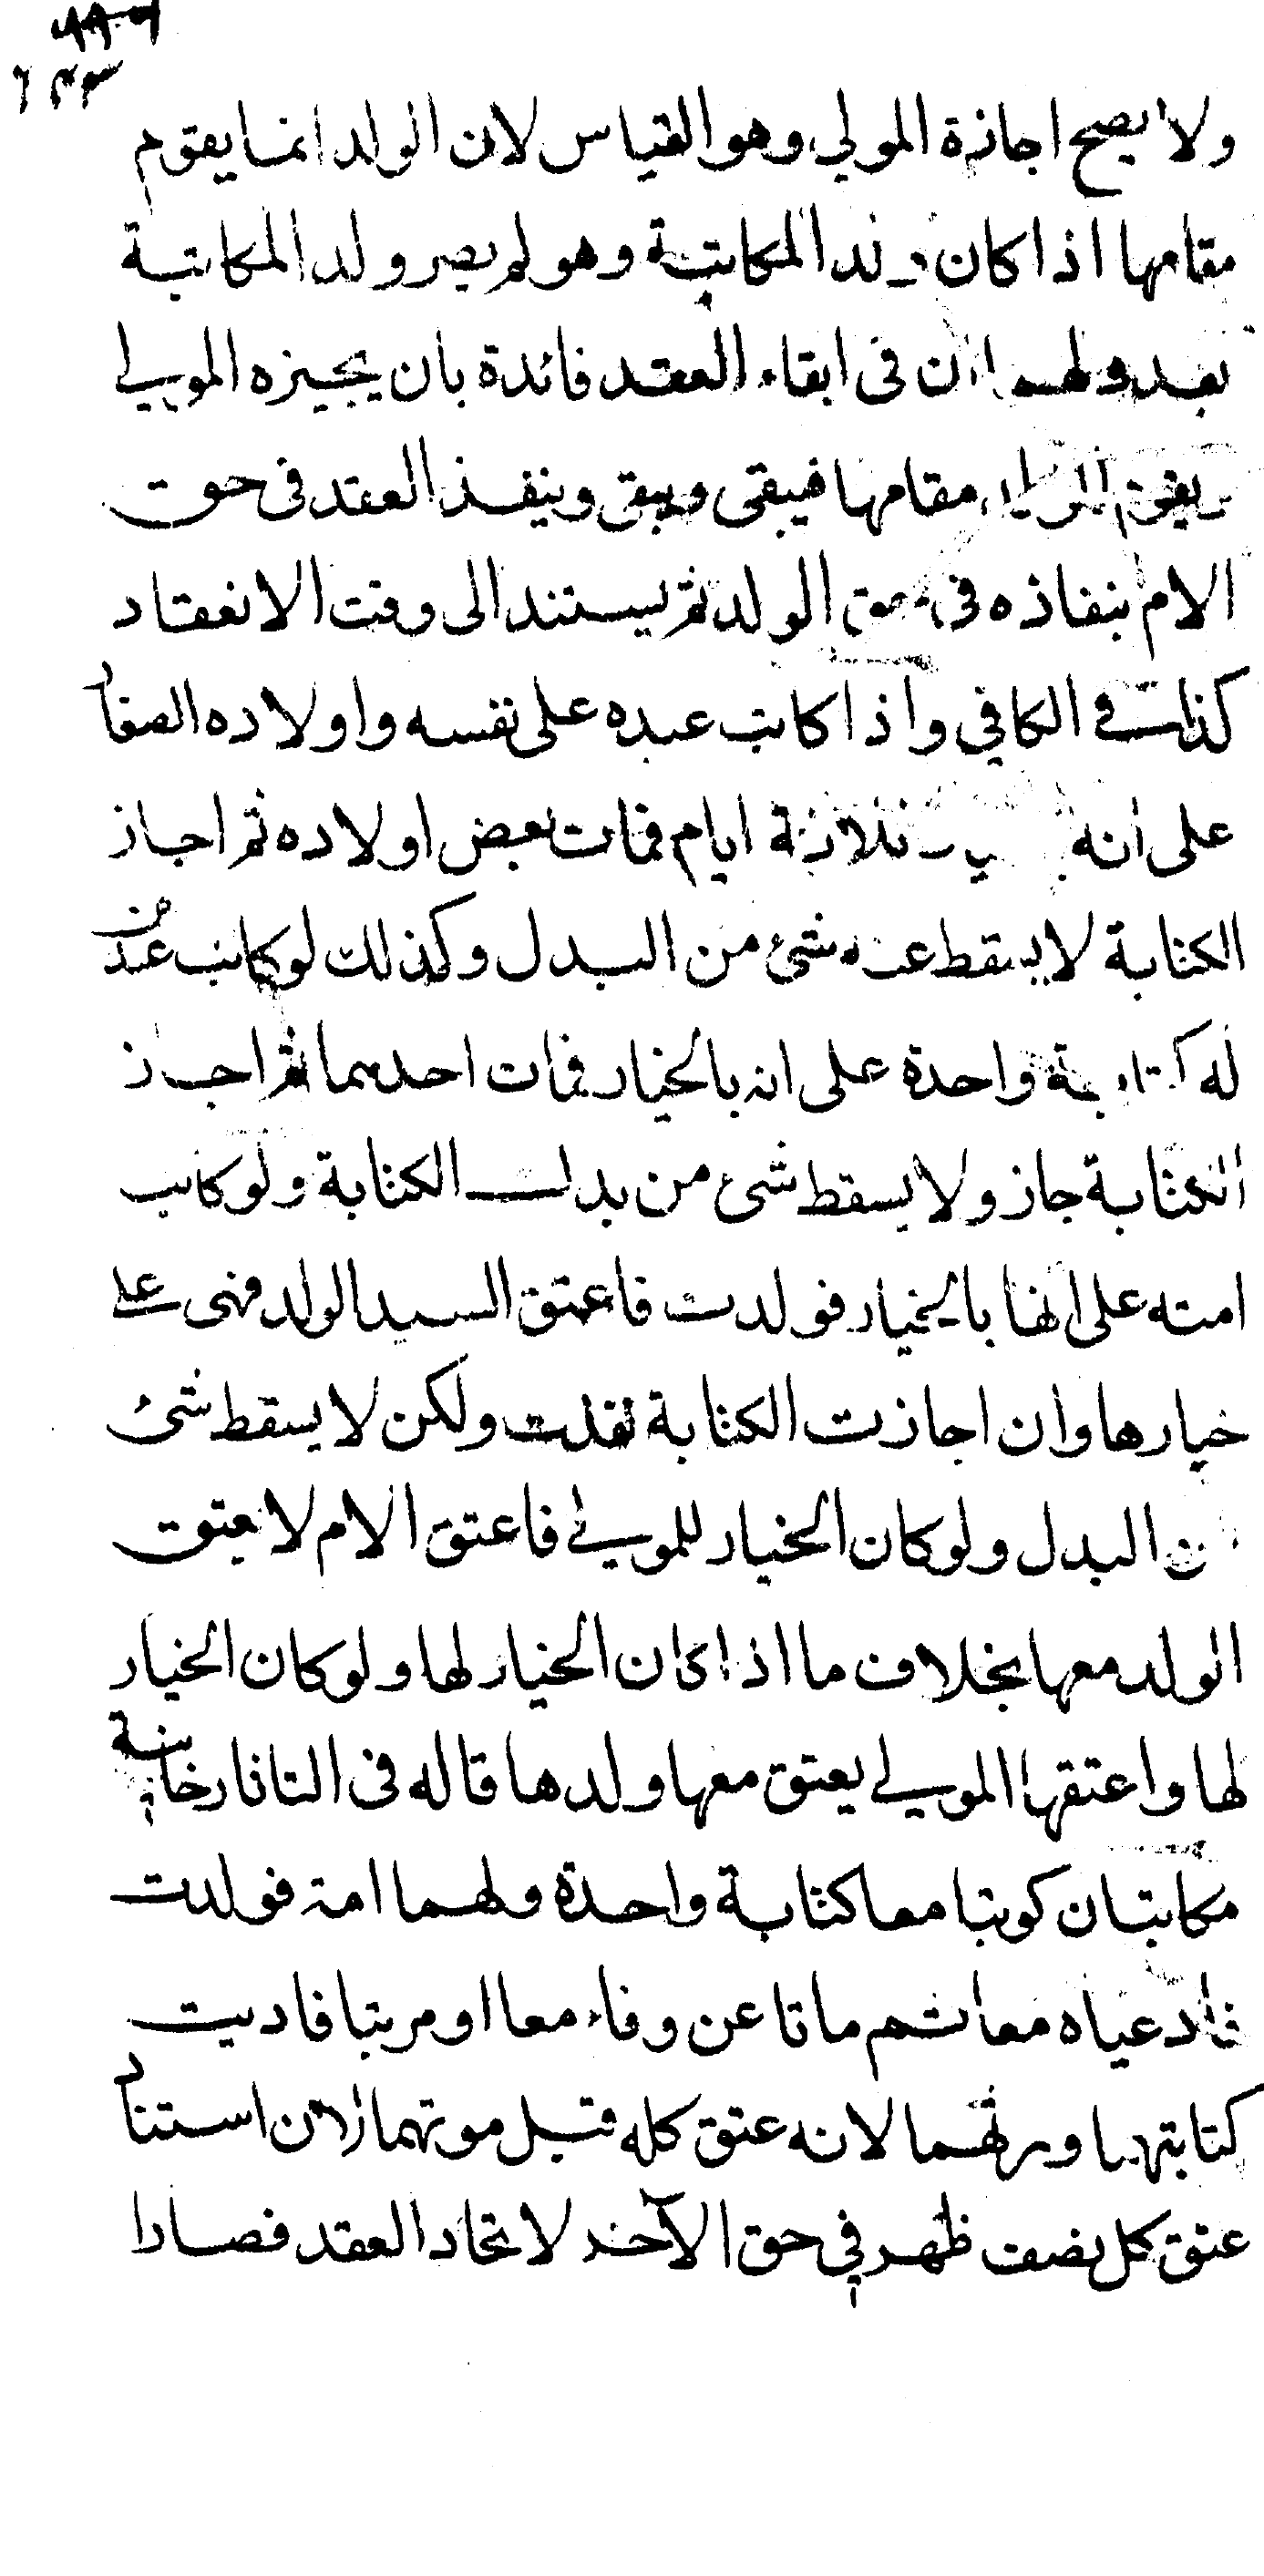 ولا يصح اجازة المولى وهو القياس لان الولد انما يقوم
مقامها اذا كان ولد المكاتبة وهو لم يصر ولد المكاتبة
بعد ولهما ان فى ابقاء العقد فائدة بان يجيزه المولى
مقامها فيبقى ويبقى وينفذ العقد فى حق
الام بنفاذه فى حق الولد ثم يستند الى وقت الانعقاد
كذا فى الكافي واذا كاتب عبده على نفسه واولاده الصغار
على انه ثلاثة ايام فمات بعض اولاده ثم اجاز
الكتابة لا يسقط عنه شئ من البدل وكذلك لو كاتب عبدين
له كتابة واحدة على انه بالخيار فمات احدهما ثم اجاز
الكتابة جاز ولا يسقط شئ من بدل الكتابة ولو كاتب
امته على انها بالخيار فولدت فاعتق السيد الولد فهى على
خيارها وان اجازت الكتابة نفذت ولكن لا يسقط شئ
من البدل ولو كان الخيار للمولى فاعتق الام لا يعتق
الولد معها بخلاف ما اذا كان الخيار لها ولو كان الخيار
لها واعتقها المولى يعتق معها ولدها قاله فى التاتارخانية
مكاتبان كوتبا معا كتابة واحدة ولهما امة فولدت
فادعياه معا ثم ماتا عن وفاء معا او مرتبا فاديت
كتابتهما ورثهما لانه عتق كله قبل موتهما لان استناد
عتق كل نصف ظهر في حق الآخر لاتحاد العقد فصارا